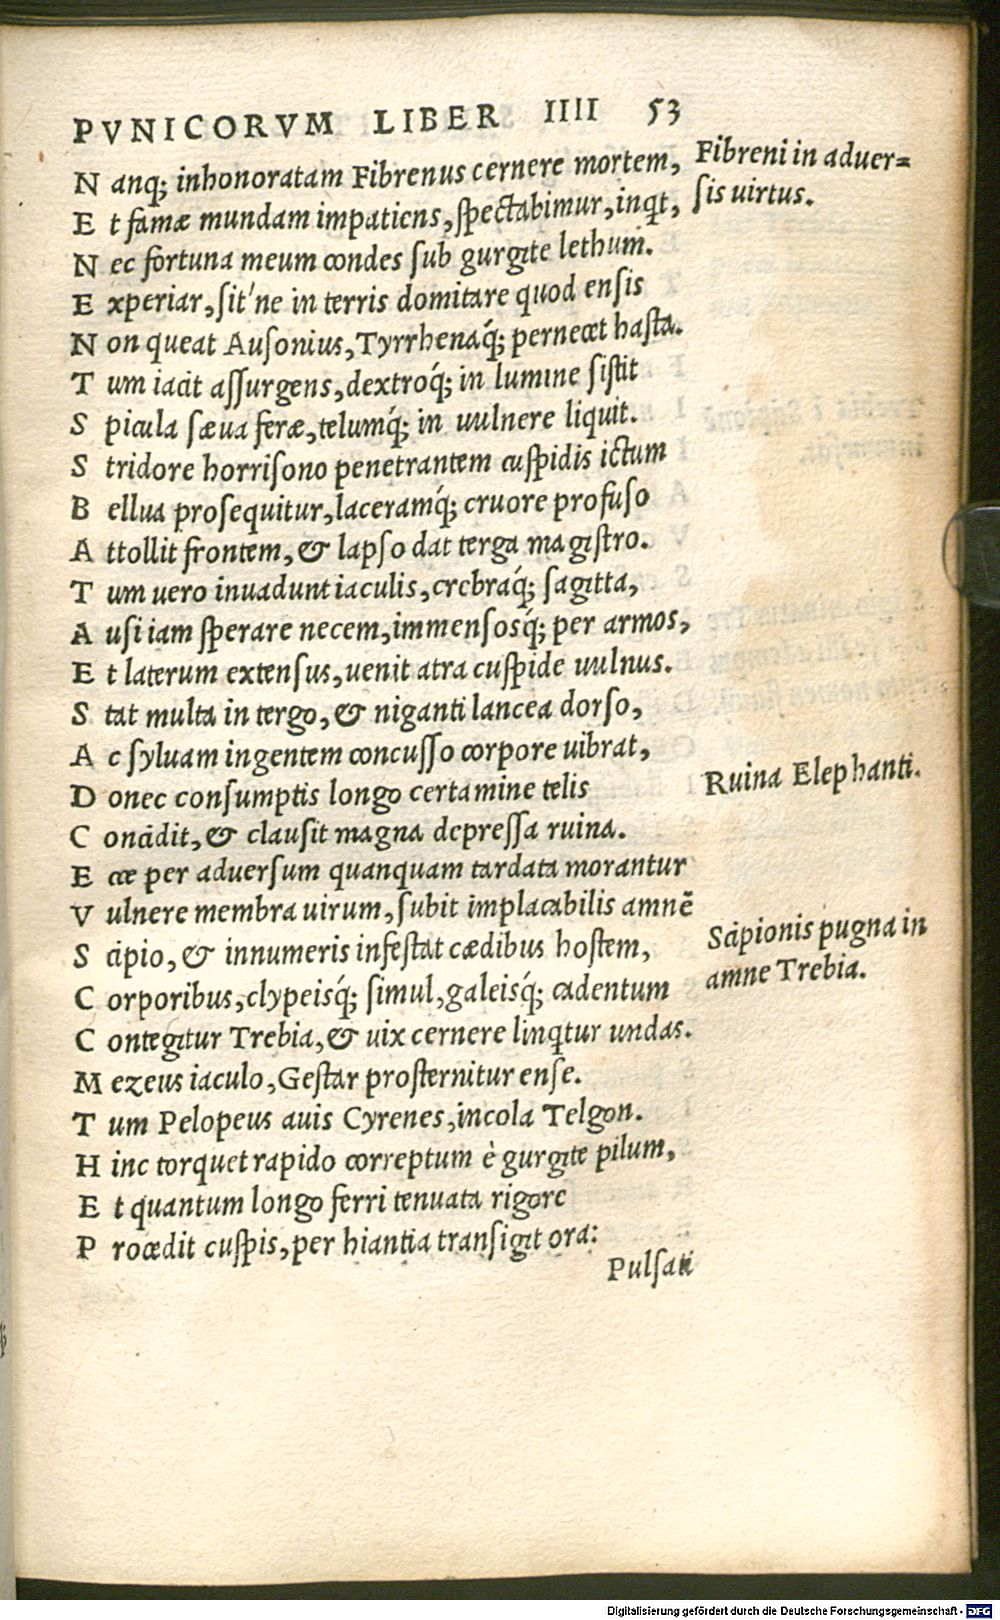 PVNICORVM LIBER IIII 53
N anq; inhonoratam Fibrenus cernere mortem,
E t famæ mundam impatiens, spectabimur, inqt,
N ec fortuna meum condes sub gurgite lethum.
E xperiar, sit'ne in terris domitare quod ensis
N on queat Ausonius, Tyrrhenaq́; pernecet hasta.
T um iacit assurgens, dextroq́; in lumine sistit
S picula sæua feræ, telumq́; in uulnere liquit.
S tridore horrisono penetrantem cuspidis ictum
B ellua prosequitur, laceramq́; cruore profuso
A ttollit frontem, & lapso dat terga magistro.
T um uero inuadunt iaculis, crebraq́; sagitta,
A usi iam sperare necem, immensosq́; per armos,
E t laterum extensus, uenit atra cuspide uulnus.
S tat multa in tergo, & niganti lancea dorso,
A c syluam ingentem concusso corpore uibrat,
D onec consumptis longo certamine telis
C oncidit, & clausit magna depressa ruina.
E cce per aduersum quanquam tardata morantur
V ulnere membra uirum, subit implacabilis amnẽ
S cipio, & innumeris infestat cædibus hostem,
C orporibus, clypeisq́; simul, galeisq́; cadentum
C ontegitur Trebia, & uix cernere linqtur undas.
M ezeus iaculo, Gestar prosternitur ense.
T um Pelopeus auis Cyrenes, incola Telgon.
H inc torquet rapido correptum è gurgite pilum,
E t quantum longo ferri tenuata rigore
P rocedit cuspis, per hiantia transigit ora:
Pulsati
Fibreni in aduer=
sis uirtus.
Ruina Elephanti.
Scipionis pugna in
amne Trebia.
Digitalisierung gefördert durch die Deutsche Forschungsgemeinschaft - DFG